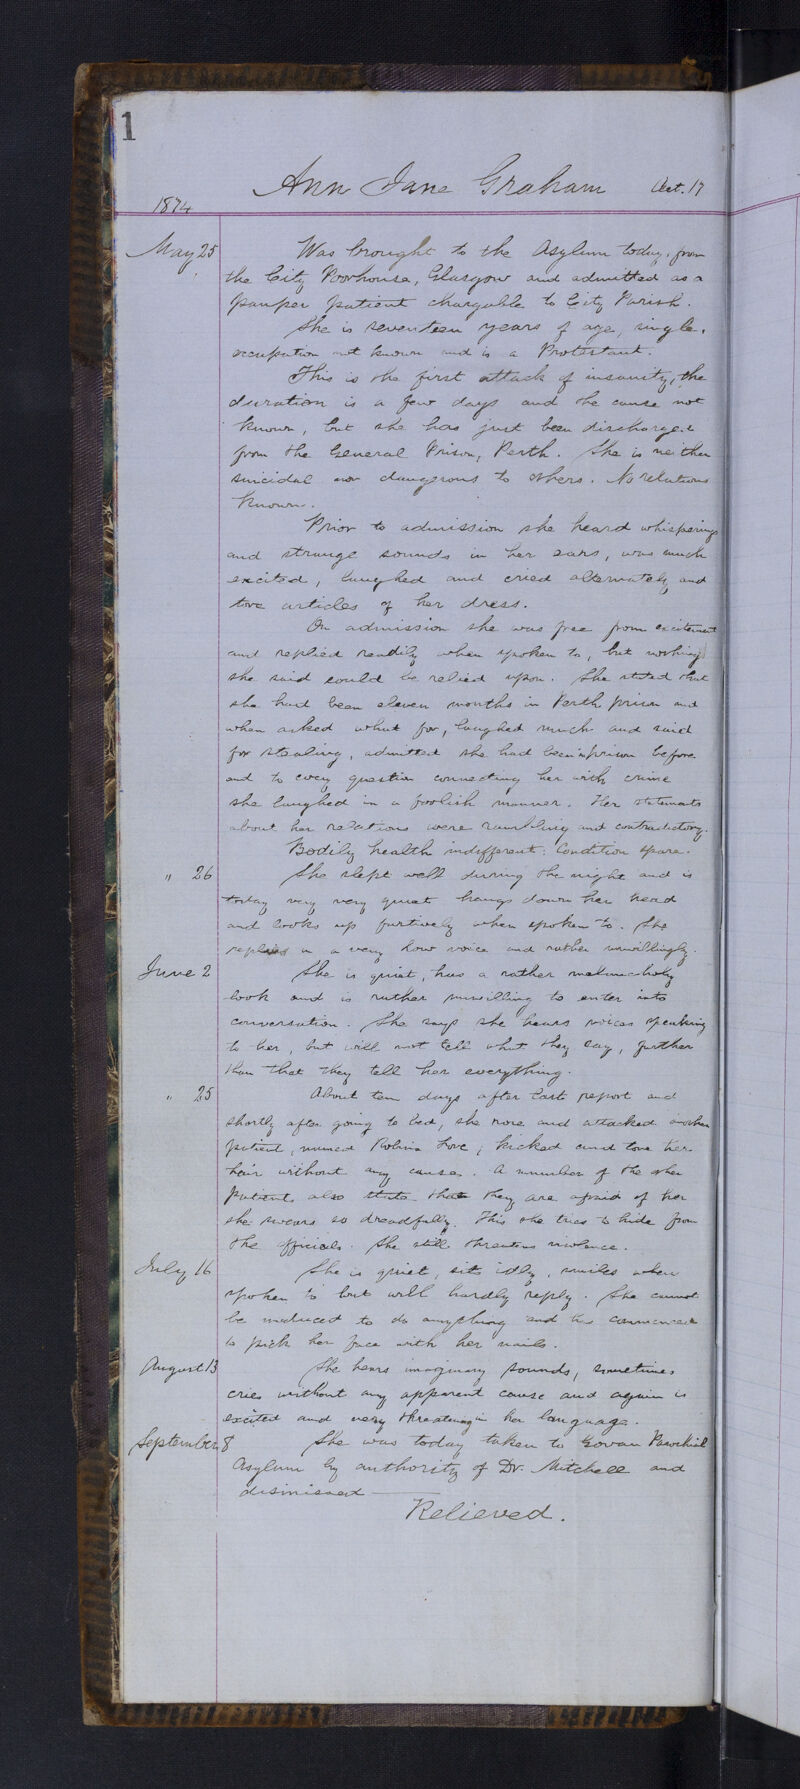 1
Ann Jane Graham Aet. 17
1874
May 25 Was brought to the Asylum today, from
the City Poorhouse, Glasgow and admitted as a
pauper patient chargable to City Parish.
She is seventeen years of age, single,
occupation not known and is a Protestant.
This is the first attack of insanity, the
duration is a few days and the cause not
known, but she has just been discharged
from the General Prison, Perth. She is neither
suicidal nor dangerous to others. No relations
known.
Prior to admission she heard whisperings
and strange sounds in her ears, was much
excited, laughed and cried alternately and
tore articles of her dress.
On admission she was free from excitement
and replied readily when spoken to, but nothing
she said could be relied upon. She stated that
she had been eleven months in Perth prison and
when asked what for, laughed much and said
for stealing, admitted she had been in prison before
and to every question connecting her with crime
she laughed in a foolish manner. Her statements
about her relations were rambling and contradictory.
Bodily health indifferent: Condition spare.
" 26 She slept well during the night and is
today very very quiet hangs down her head
and looks up furtively when spoken to. She
replies in a very low voice and rather unwillingly.
June 2 She is quiet, has a rather melancholy
look and is rather unwilling to enter into
conversation. She says she hears voices speaking
to her, but will not tell what they say, further
than that they tell her everything.
" 25 About ten days after last report and
shortly after going to bed, she rose and attacked another
patient, named Robina Love, kicked and tore her
hair without any cause. A number of the other
patients also state that they are afraid of her
she swears so dreadfully. This she tries to hide from
the officials. She still threatens violence.
July 16 She is quiet, sits idly, smiles when
spoken to but will hardly reply. She cannot
be induced to do anything and has commenced
to pick her face with her nails.
August 13 She hears imaginary sounds, sometimes
cries without any apparent cause and again is
excited and very threatening in her language.
September 8 She was today taken to Govan Parochial
Asylum by authority of Dr. Mitchell and
dismissed
Relieved.